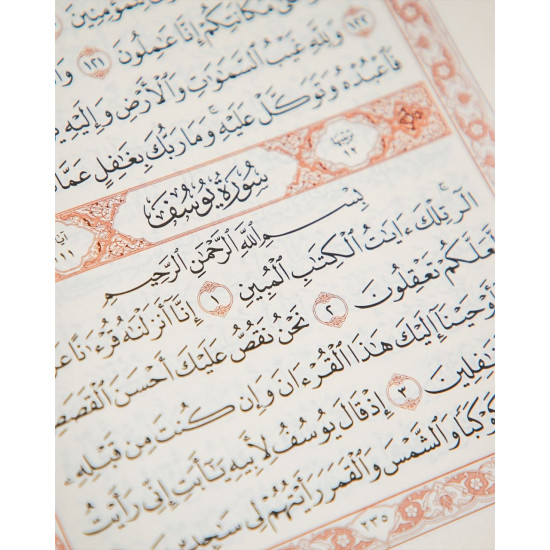 بِمُؤْمِنِينَ ١٢٠
مَكَانَتِكُمْ إِنَّا عَٰمِلُونَ ١٢١
١٢٢ وَلِلَّهِ غَيْبُ ٱلسَّمَٰوَٰتِ وَٱلْأَرْضِ وَإِلَيْهِ
فَٱعْبُدْهُ وَتَوَكَّلْ عَلَيْهِ ۚ وَمَا رَبُّكَ بِغَٰفِلٍ عَمَّا
ترتيبها ١٢
سُورَةُ يُوسُفَ
آياتها ١١١
بِسْمِ ٱللَّهِ ٱلرَّحْمَٰنِ ٱلرَّحِيمِ
الٓر ۚ تِلْكَ ءَايَٰتُ ٱلْكِتَٰبِ ٱلْمُبِينِ ١ إِنَّآ أَنزَلْنَٰهُ قُرْءَٰنًا عَرَ
لَّعَلَّكُمْ تَعْقِلُونَ ٢ نَحْنُ نَقُصُّ عَلَيْكَ أَحْسَنَ ٱلْقَصَصِ
أَوْحَيْنَآ إِلَيْكَ هَٰذَا ٱلْقُرْءَانَ وَإِن كُنتَ مِن قَبْلِهِۦ
ٱلْغَٰفِلِينَ ٣ إِذْ قَالَ يُوسُفُ لِأَبِيهِ يَٰٓأَبَتِ إِنِّى رَأَيْتُ
كَوْكَبًا وَٱلشَّمْسَ وَٱلْقَمَرَ رَأَيْتُهُمْ لِى سَٰجِدِينَ
٢٣٥